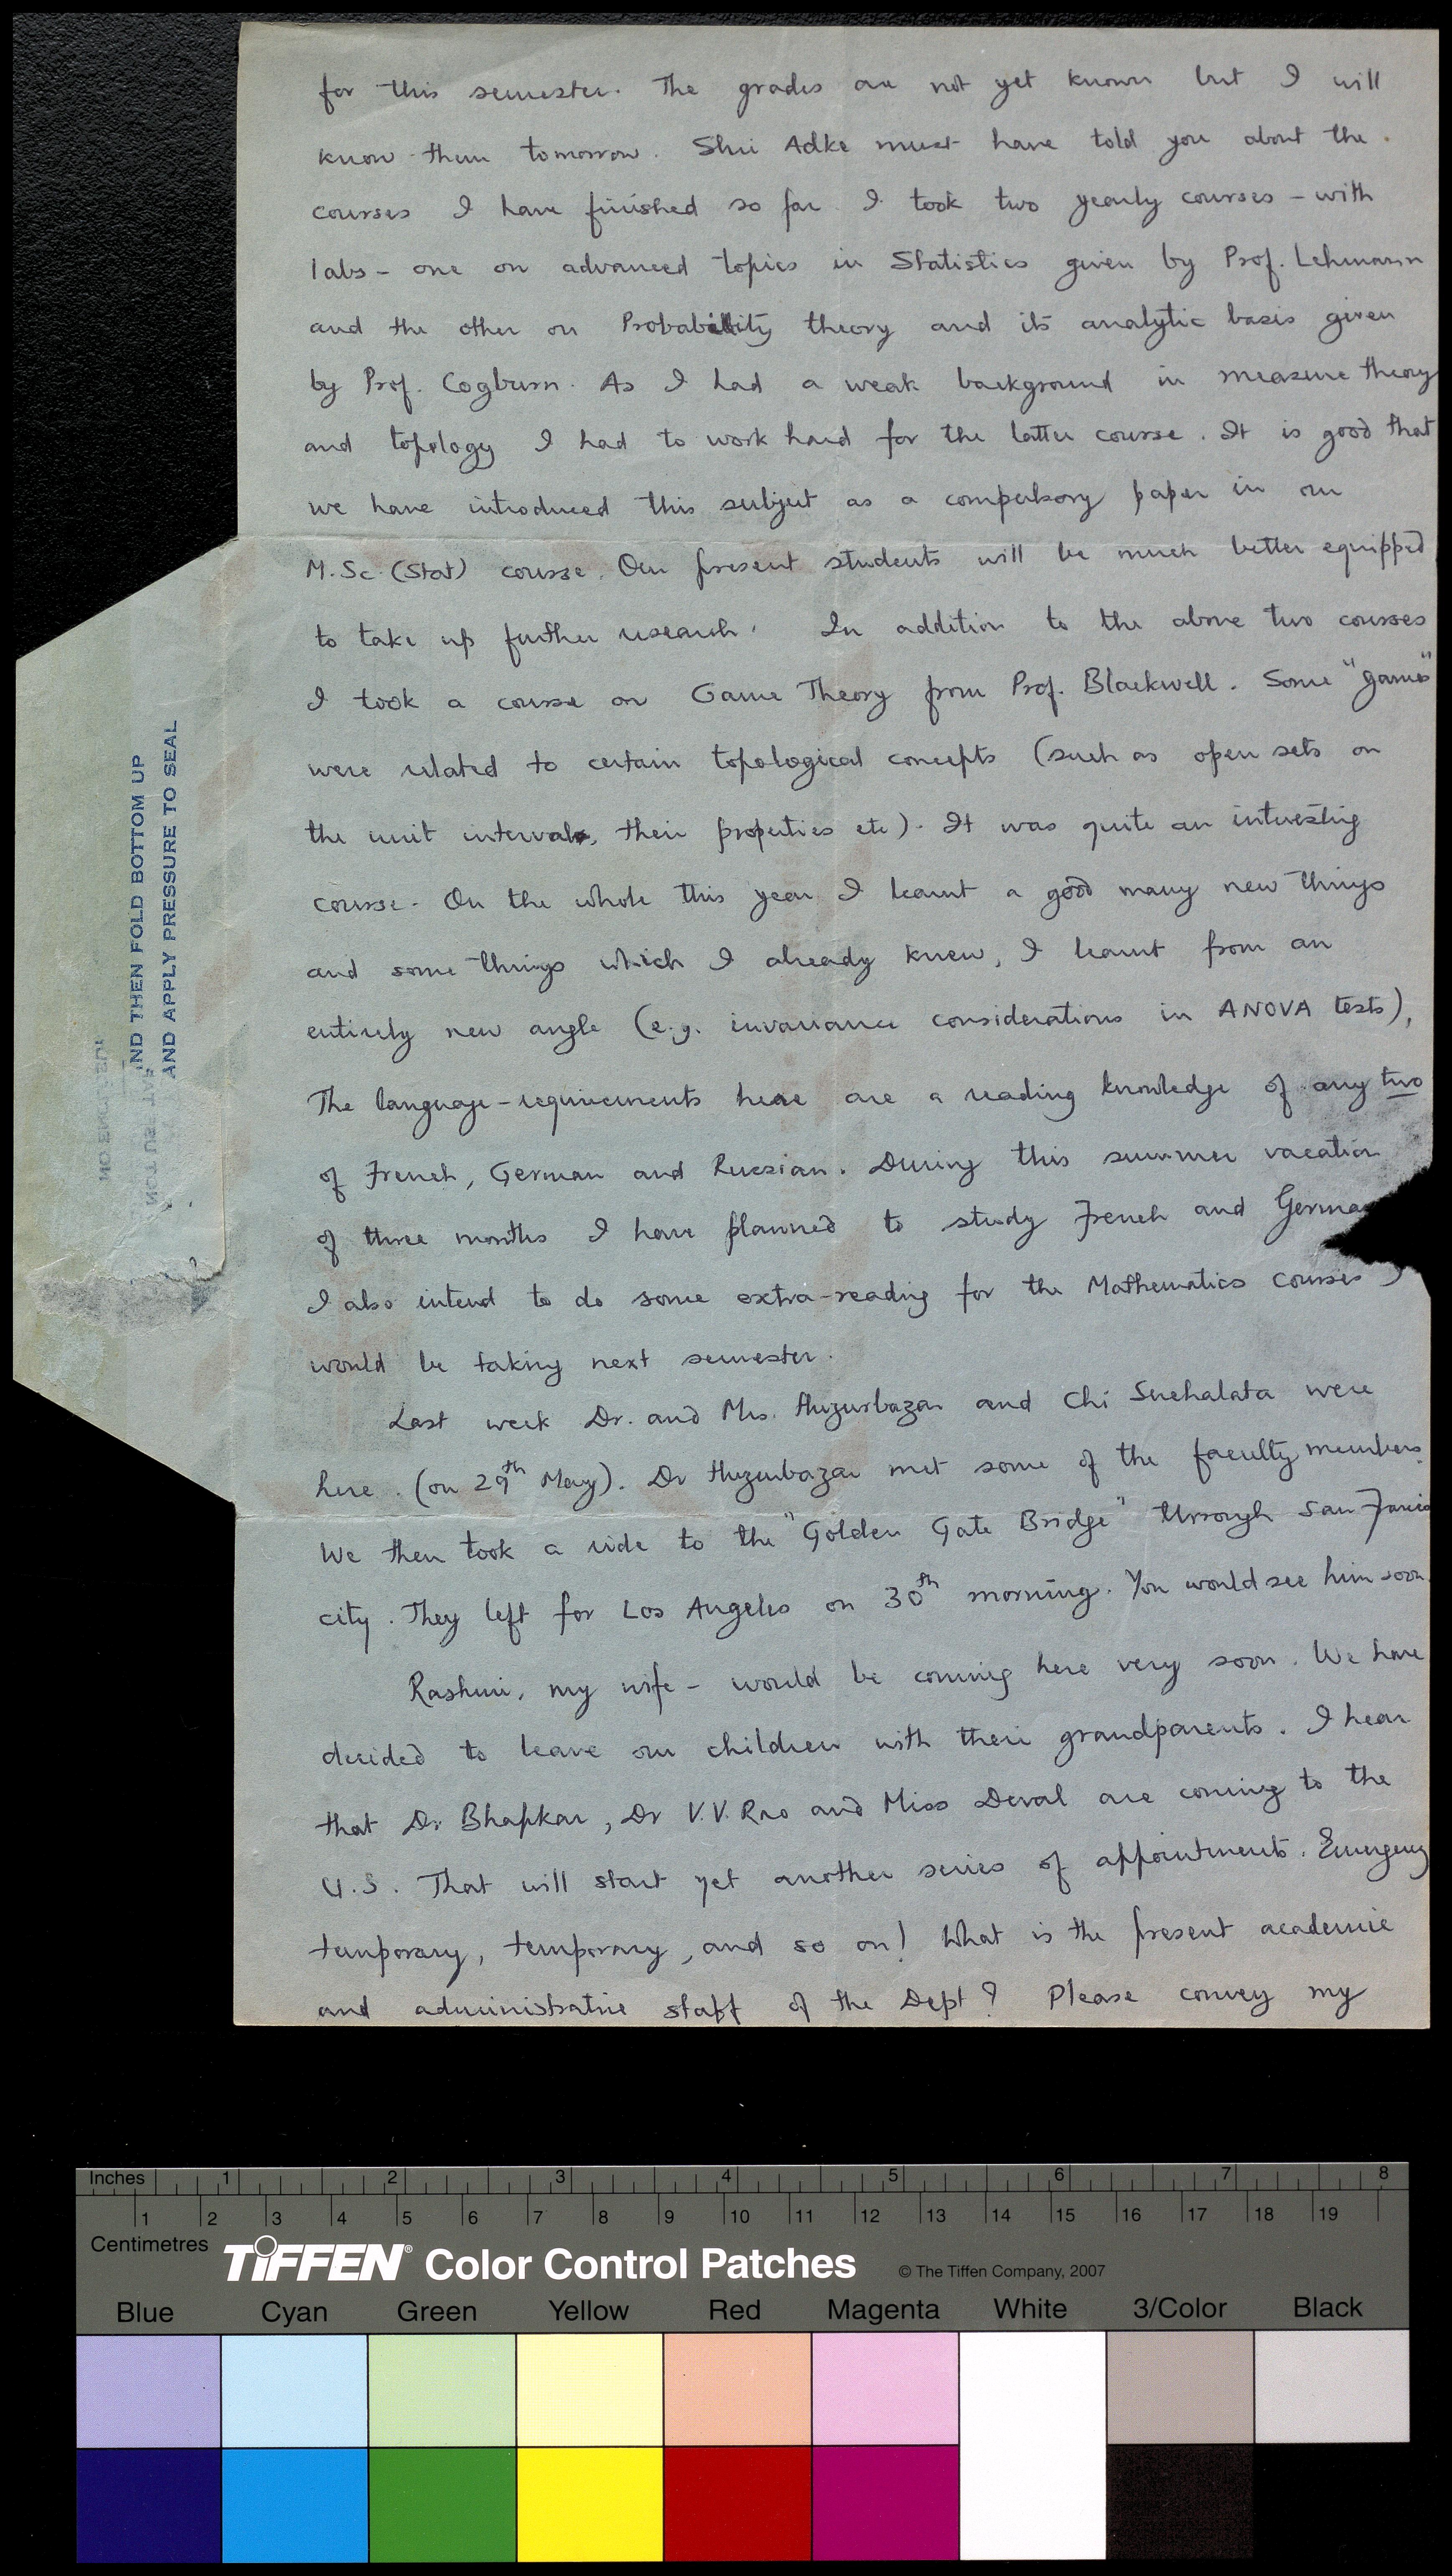 for this semester. The grades are not yet known but I will
know them tomorrow. Shri Adke must have told you about the
courses I have finished so far. I took two yearly courses – with
labs – one on advanced topics in Statistics given by Prof. Lehmann
and the other on Probability theory and its analytic basis given
by Prof. Cogburn. As I had a weak background in measure theory
and topology I had to work hard for the latter course. It is good that
we have introduced this subject as a compulsory paper in our
M.Sc. (Stat) course. Our present students will be much better equipped
to take up further research. In addition to the above two courses
I took a course on Game Theory from Prof. Blackwell. Some "games"
were related to certain topological concepts (such as open sets on
the unit interval, their properties etc). It was quite an interesting
course. On the whole this year I learnt a good many new things
and some things which I already knew, I learnt from an
entirely new angle (e.g. invariance considerations in ANOVA tests),
The language-requirements here are a reading knowledge of any two
of French, German and Russian. During this summer vacation
of three months I have planned to study French and German
I also intend to do some extra-reading for the Mathematics courses I
would be taking next semester.
Last week Dr. and Mrs. Huzurbazar and Chi Snehalata were
here. (on 29th May). Dr Huzurbazar met some of the faculty members.
We then took a ride to the "Golden Gate Bridge" through San Francisco
city. They left for Los Angeles on 30th morning. You would see him soon.
Rashmi, my wife – would be coming here very soon. We have
decided to leave our children with their grandparents. I hear
that Dr Bhapkar, Dr V.V. Rao and Miss Deval are coming to the
U.S. That will start yet another series of appointments. Emergency
temporary, temporary, and so on! What is the present academic
and administrative staff of the Dept? Please convey my
AND THEN FOLD BOTTOM UP
AND APPLY PRESSURE TO SEAL
Inches 1 2 3 4 5 6 7 8
1 2 3 4 5 6 7 8 9 10 11 12 13 14 15 16 17 18 19
Centimetres
TIFFEN® Color Control Patches © The Tiffen Company, 2007
Blue Cyan Green Yellow Red Magenta White 3/Color Black